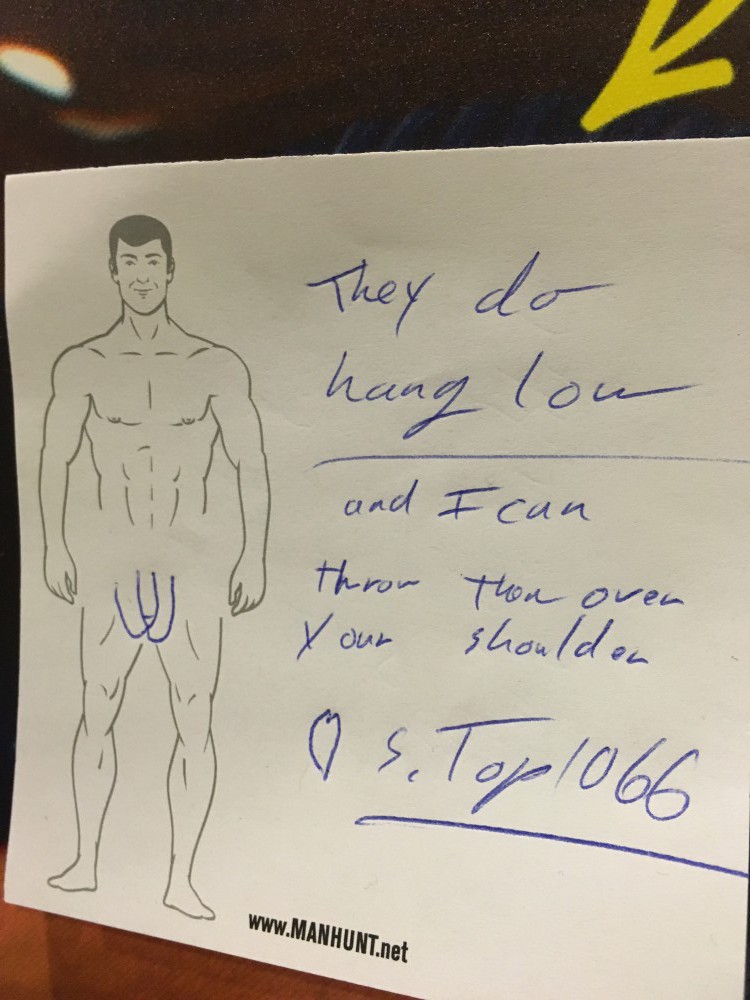 They do
hang low
and I can
throw them over
Your shoulder
S. Top1066
www.MANHUNT.net